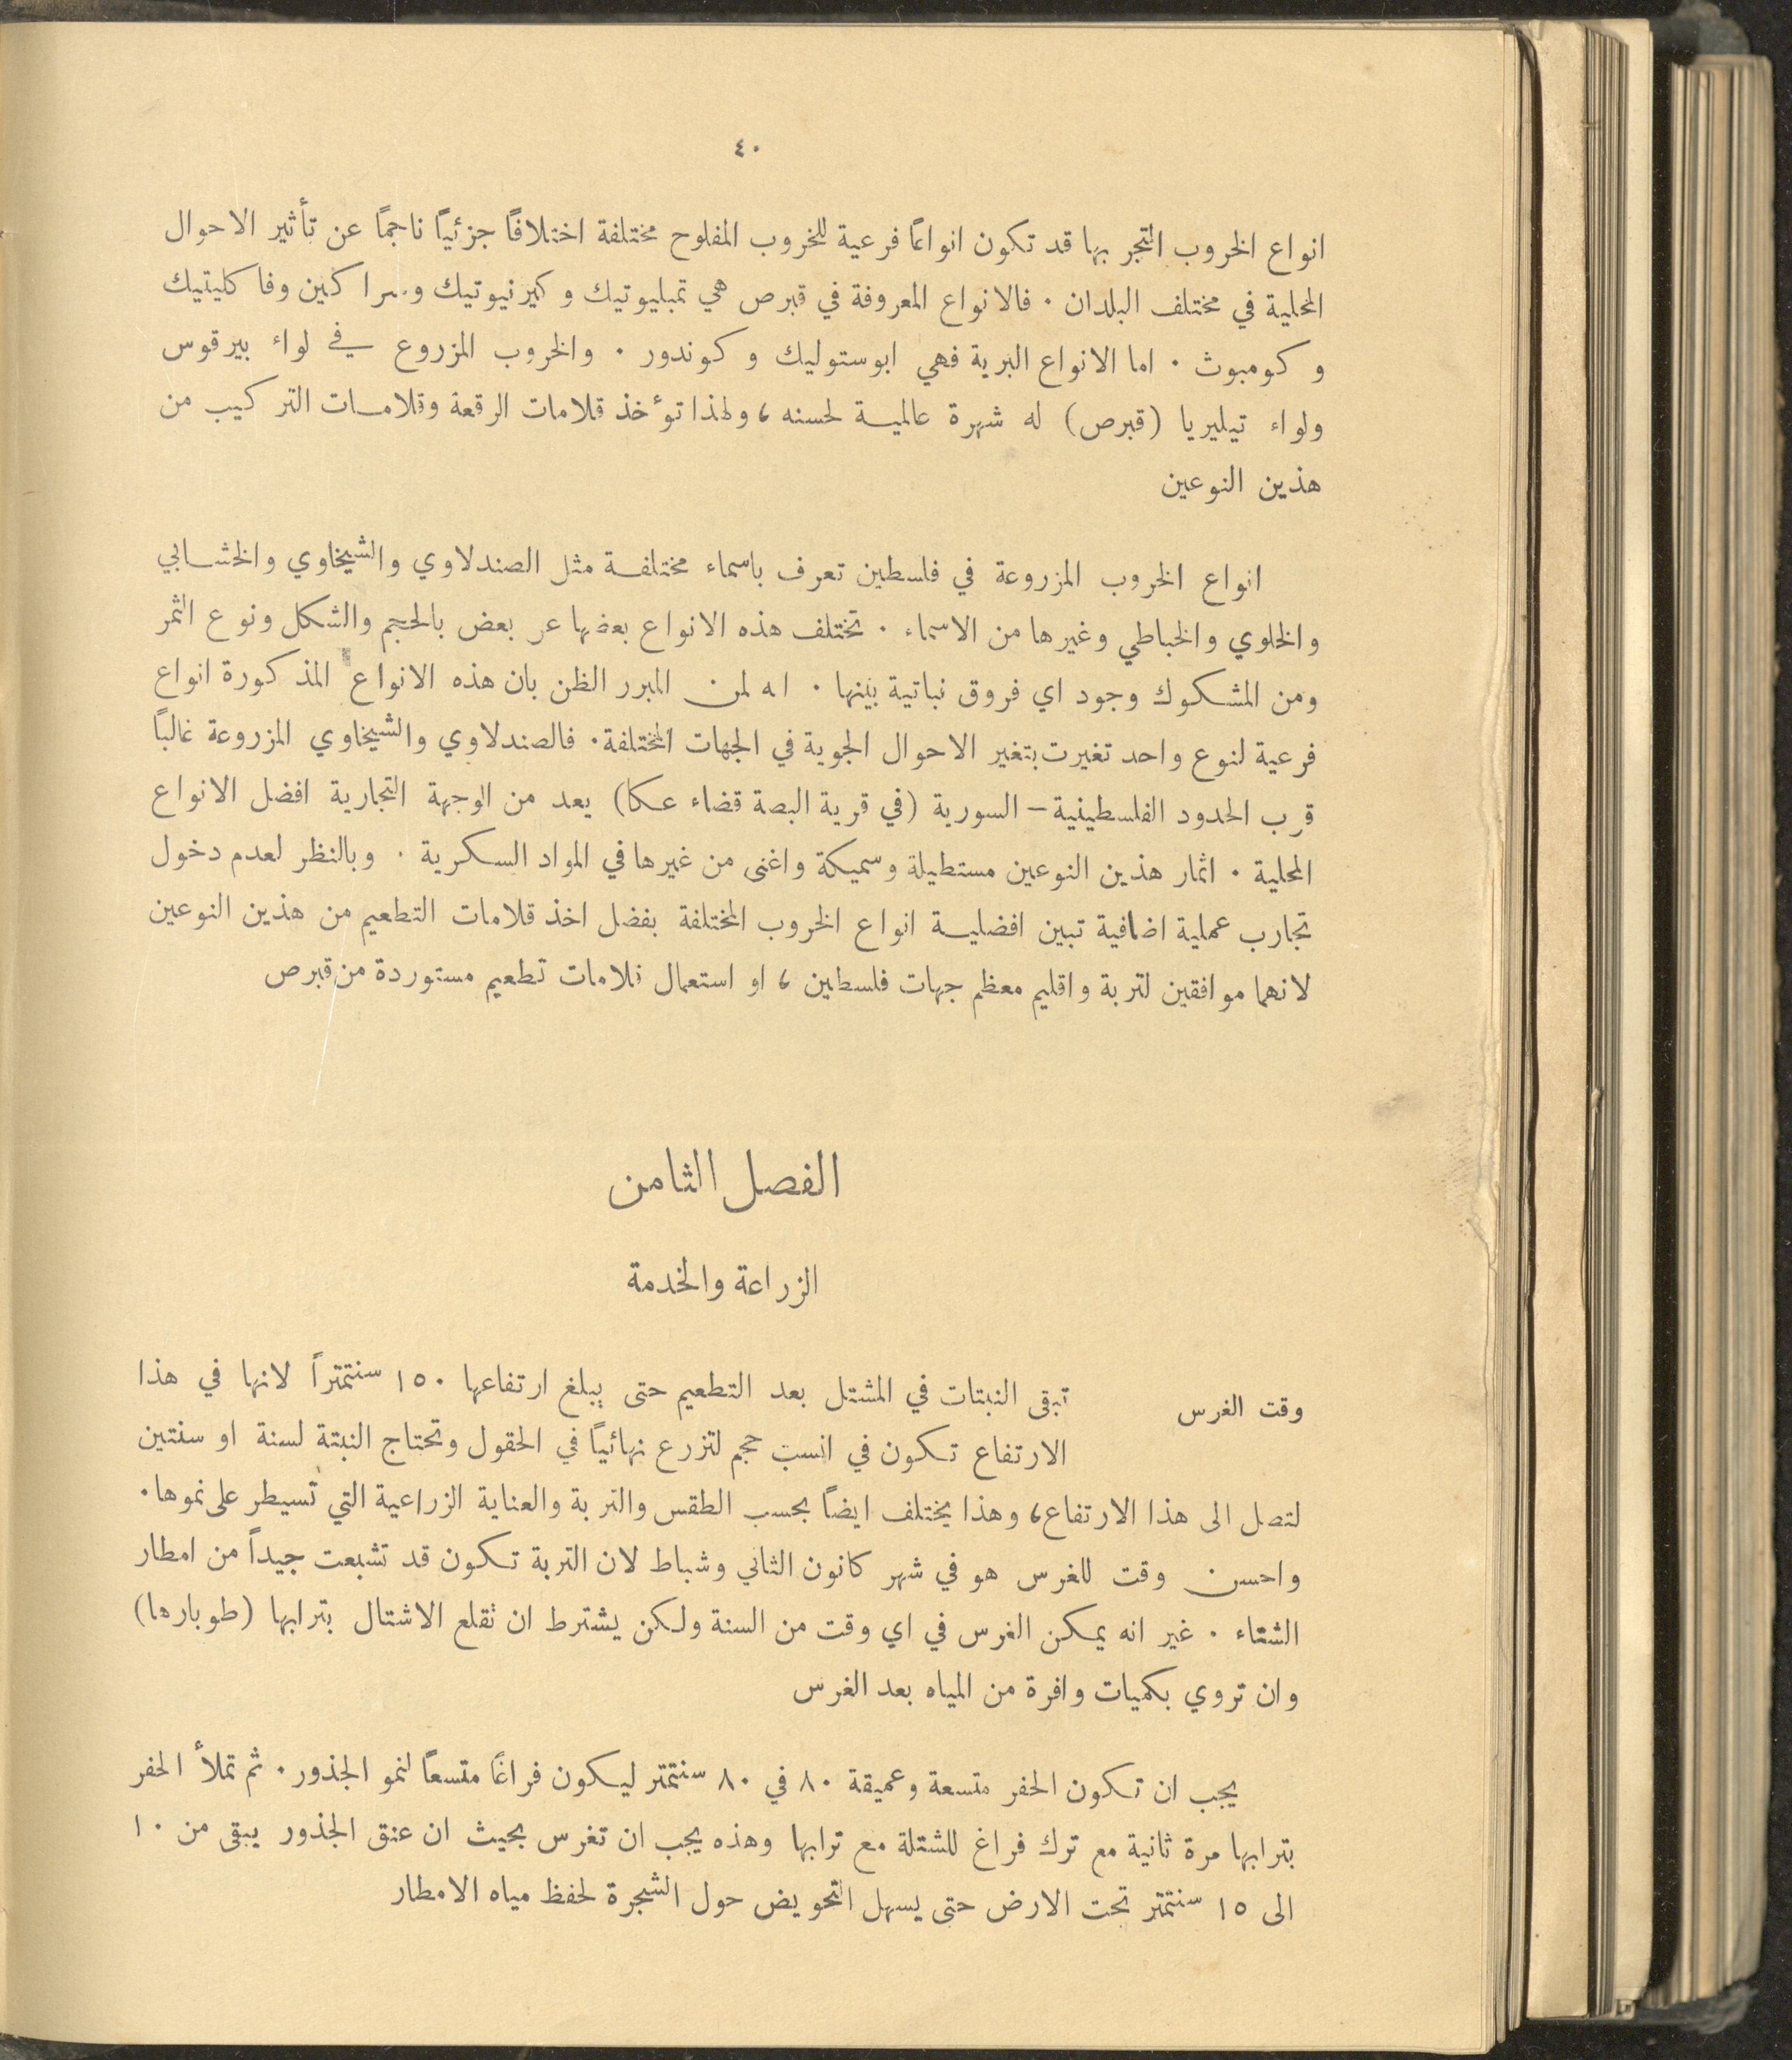 ٤٠
انواع الخروب المتجر بها قد تكون انواعًا فرعية للخروب المفلوح مختلفة اختلافًا جزئيًا ناجمًا عن تأثير الاحوال
المحلية في مختلف البلدان . فالانواع المعروفة في قبرص هي تمبليوتيك وكيرنيوتيك وسراكين وفاكليتيك
وكومبوث . اما الانواع البرية فهي ابوستوليك وكوندور . والخروب المزروع في لواء بيرقوس
ولواء تيليريا (قبرص) له شهرة عالمية لحسنه ، ولهذا تؤخذ قلامات الرقعة وقلامات التركيب من
هذين النوعين
انواع الخروب المزروعة في فلسطين تعرف باسماء مختلفة مثل الصندلاوي والشيخاوي والخشابي
والخلوي والخباطي وغيرها من الاسماء . تختلف هذه الانواع بعضها عن بعض بالحجم والشكل ونوع الثمر
ومن المشكوك وجود اي فروق نباتية بينها . انه لمن المبرر الظن بان هذه الانواع المذكورة انواع
فرعية لنوع واحد تغيرت بتغير الاحوال الجوية في الجهات المختلفة . فالصندلاوي والشيخاوي المزروعة غالبًا
قرب الحدود الفلسطينية – السورية (في قرية البصة قضاء عكا) يعد من الوجهة التجارية افضل الانواع
المحلية . اثمار هذين النوعين مستطيلة وسميكة واغنى من غيرها في المواد السكرية . وبالنظر لعدم دخول
تجارب عملية اضافية تبين افضلية انواع الخروب المختلفة بفضل اخذ قلامات التطعيم من هذين النوعين
لانهما موافقين لتربة واقليم معظم جهات فلسطين ، او استعمال قلامات تطعيم مستوردة من قبرص
الفصل الثامن
الزراعة والخدمة
وقت الغرس
تبقى النبتات في المشتل بعد التطعيم حتى يبلغ ارتفاعها ١٥٠ سنتمتراً لانها في هذا
الارتفاع تكون في انسب حجم لتزرع نهائيًا في الحقول وتحتاج النبتة لسنة او سنتين
لتصل الى هذا الارتفاع ، وهذا يختلف ايضًا بحسب الطقس والتربة والعناية الزراعية التي تسيطر على نموها .
واحسن وقت للغرس هو في شهر كانون الثاني وشباط لان التربة تكون قد تشبعت جيداً من امطار
الشتاء . غير انه يمكن الغرس في اي وقت من السنة ولكن يشترط ان تقلع الاشتال بترابها (طوبارها)
وان تروي بكميات وافرة من المياه بعد الغرس
يجب ان تكون الحفر متسعة وعميقة ٨٠ في ٨٠ سنتمتر ليكون فراغًا متسعًا لنمو الجذور . ثم تملأ الحفر
بترابها مرة ثانية مع ترك فراغ للشتلة مع ترابها وهذه يجب ان تغرس بحيث ان عنق الجذور يبقى من ١٠
الى ١٥ سنتمتر تحت الارض حتى يسهل التحويض حول الشجرة لحفظ مياه الامطار